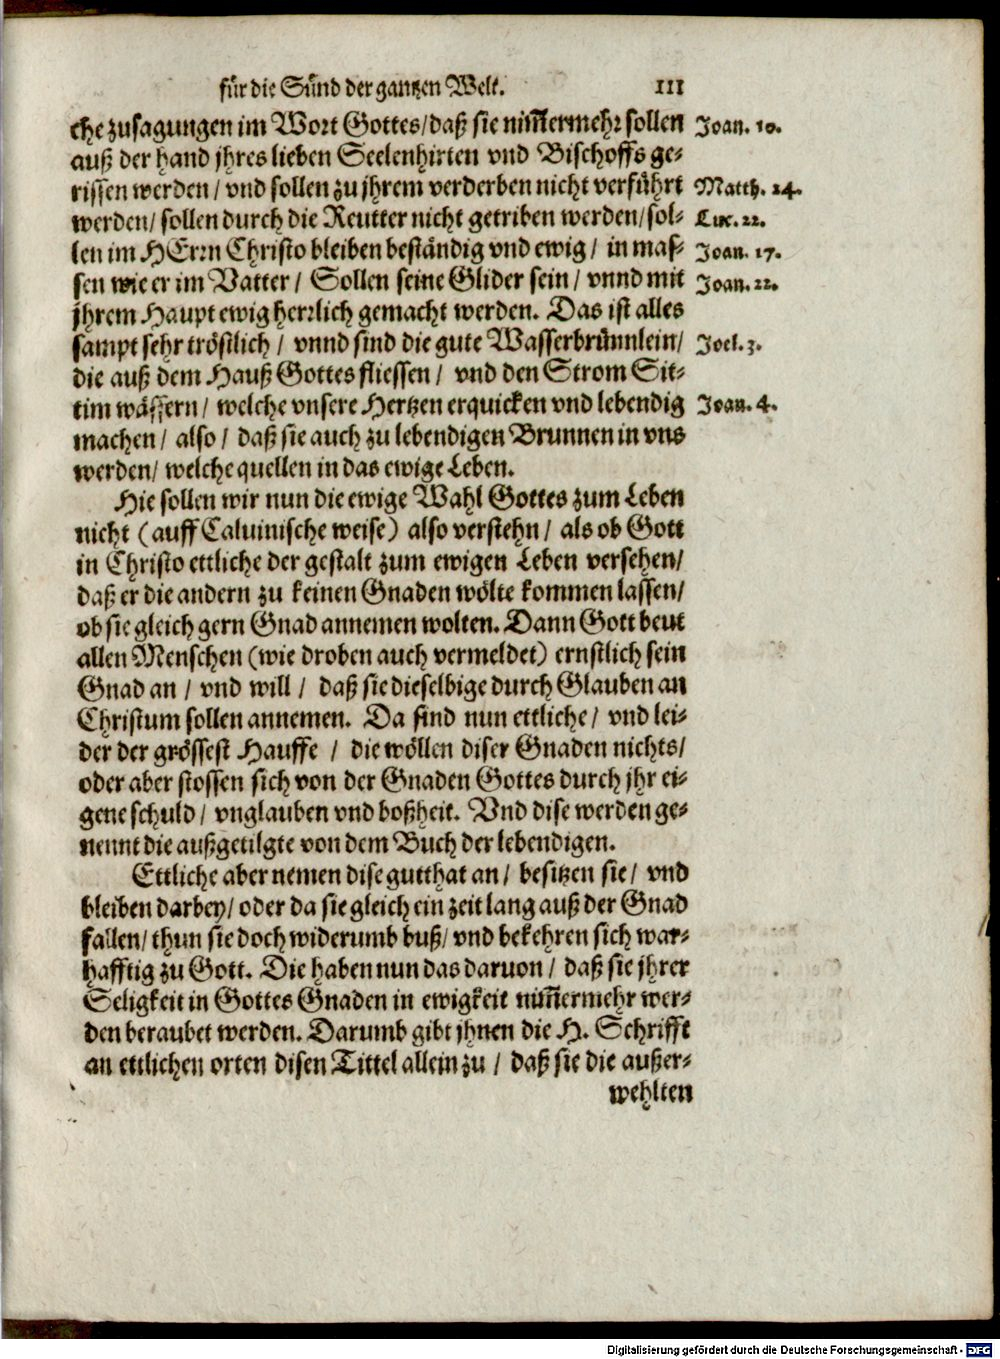 für die Sünd der gantzen Welt. 111
che zusagungen im Wort Gottes/ daß sie nim̃ermehr sollen Joan. 10.
auß der hand jhres lieben Seelenhirten vnd Bischoffs ge-
rissen werden/ vnd sollen zu jhrem verderben nicht verführt Matth. 24.
werden/ sollen durch die Reutter nicht getriben werden/ sol- Luc. 22.
len im HErrn Christo bleiben beständig vnd ewig/ in mas- Joan. 17.
sen wie er im Vatter/ Sollen seine Glider sein/ vnnd mit Joan. 22.
jhrem Haupt ewig herrlich gemacht werden. Das ist alles
sampt sehr tröstlich/ vnnd sind die gute Wasserbrünnlein/ Joel. 3.
die auß dem Hauß Gottes fliessen/ vnd den Strom Sit-
tim wässern/ welche vnsere Hertzen erquicken vnd lebendig Joan. 4.
machen/ also/ daß sie auch zu lebendigen Brunnen in vns
werden/ welche quellen in das ewige Leben.
Hie sollen wir nun die ewige Wahl Gottes zum Leben
nicht (auff Caluinische weise) also verstehn/ als ob Gott
in Christo ettliche der gestalt zum ewigen Leben versehen/
daß er die andern zu keinen Gnaden wölte kommen lassen/
ob sie gleich gern Gnad annemen wolten. Dann Gott beut
allen Menschen (wie droben auch vermeldet) ernstlich sein
Gnad an/ vnd will/ daß sie dieselbige durch Glauben an
Christum sollen annemen. Da sind nun ettliche/ vnd lei-
der der grössest Hauffe/ die wöllen diser Gnaden nichts/
oder aber stossen sich von der Gnaden Gottes durch jhr ei-
gene schuld/ vnglauben vnd boßheit. Vnd dise werden ge-
nennt die außgetilgte von dem Buch der lebendigen.
Ettliche aber nemen dise gutthat an/ besitzen sie/ vnd
bleiben darbey/ oder da sie gleich ein zeit lang auß der Gnad
fallen/ thun sie doch widerumb buß/ vnd bekehren sich war-
hafftig zu Gott. Die haben nun das daruon/ daß sie jhrer
Seligkeit in Gottes Gnaden in ewigkeit nim̃ermehr wer-
den beraubet werden. Darumb gibt jhnen die H. Schrifft
an ettlichen orten disen Tittel allein zu/ daß sie die außer-
wehlten
Digitalisierung gefördert durch die Deutsche Forschungsgemeinschaft - DFG